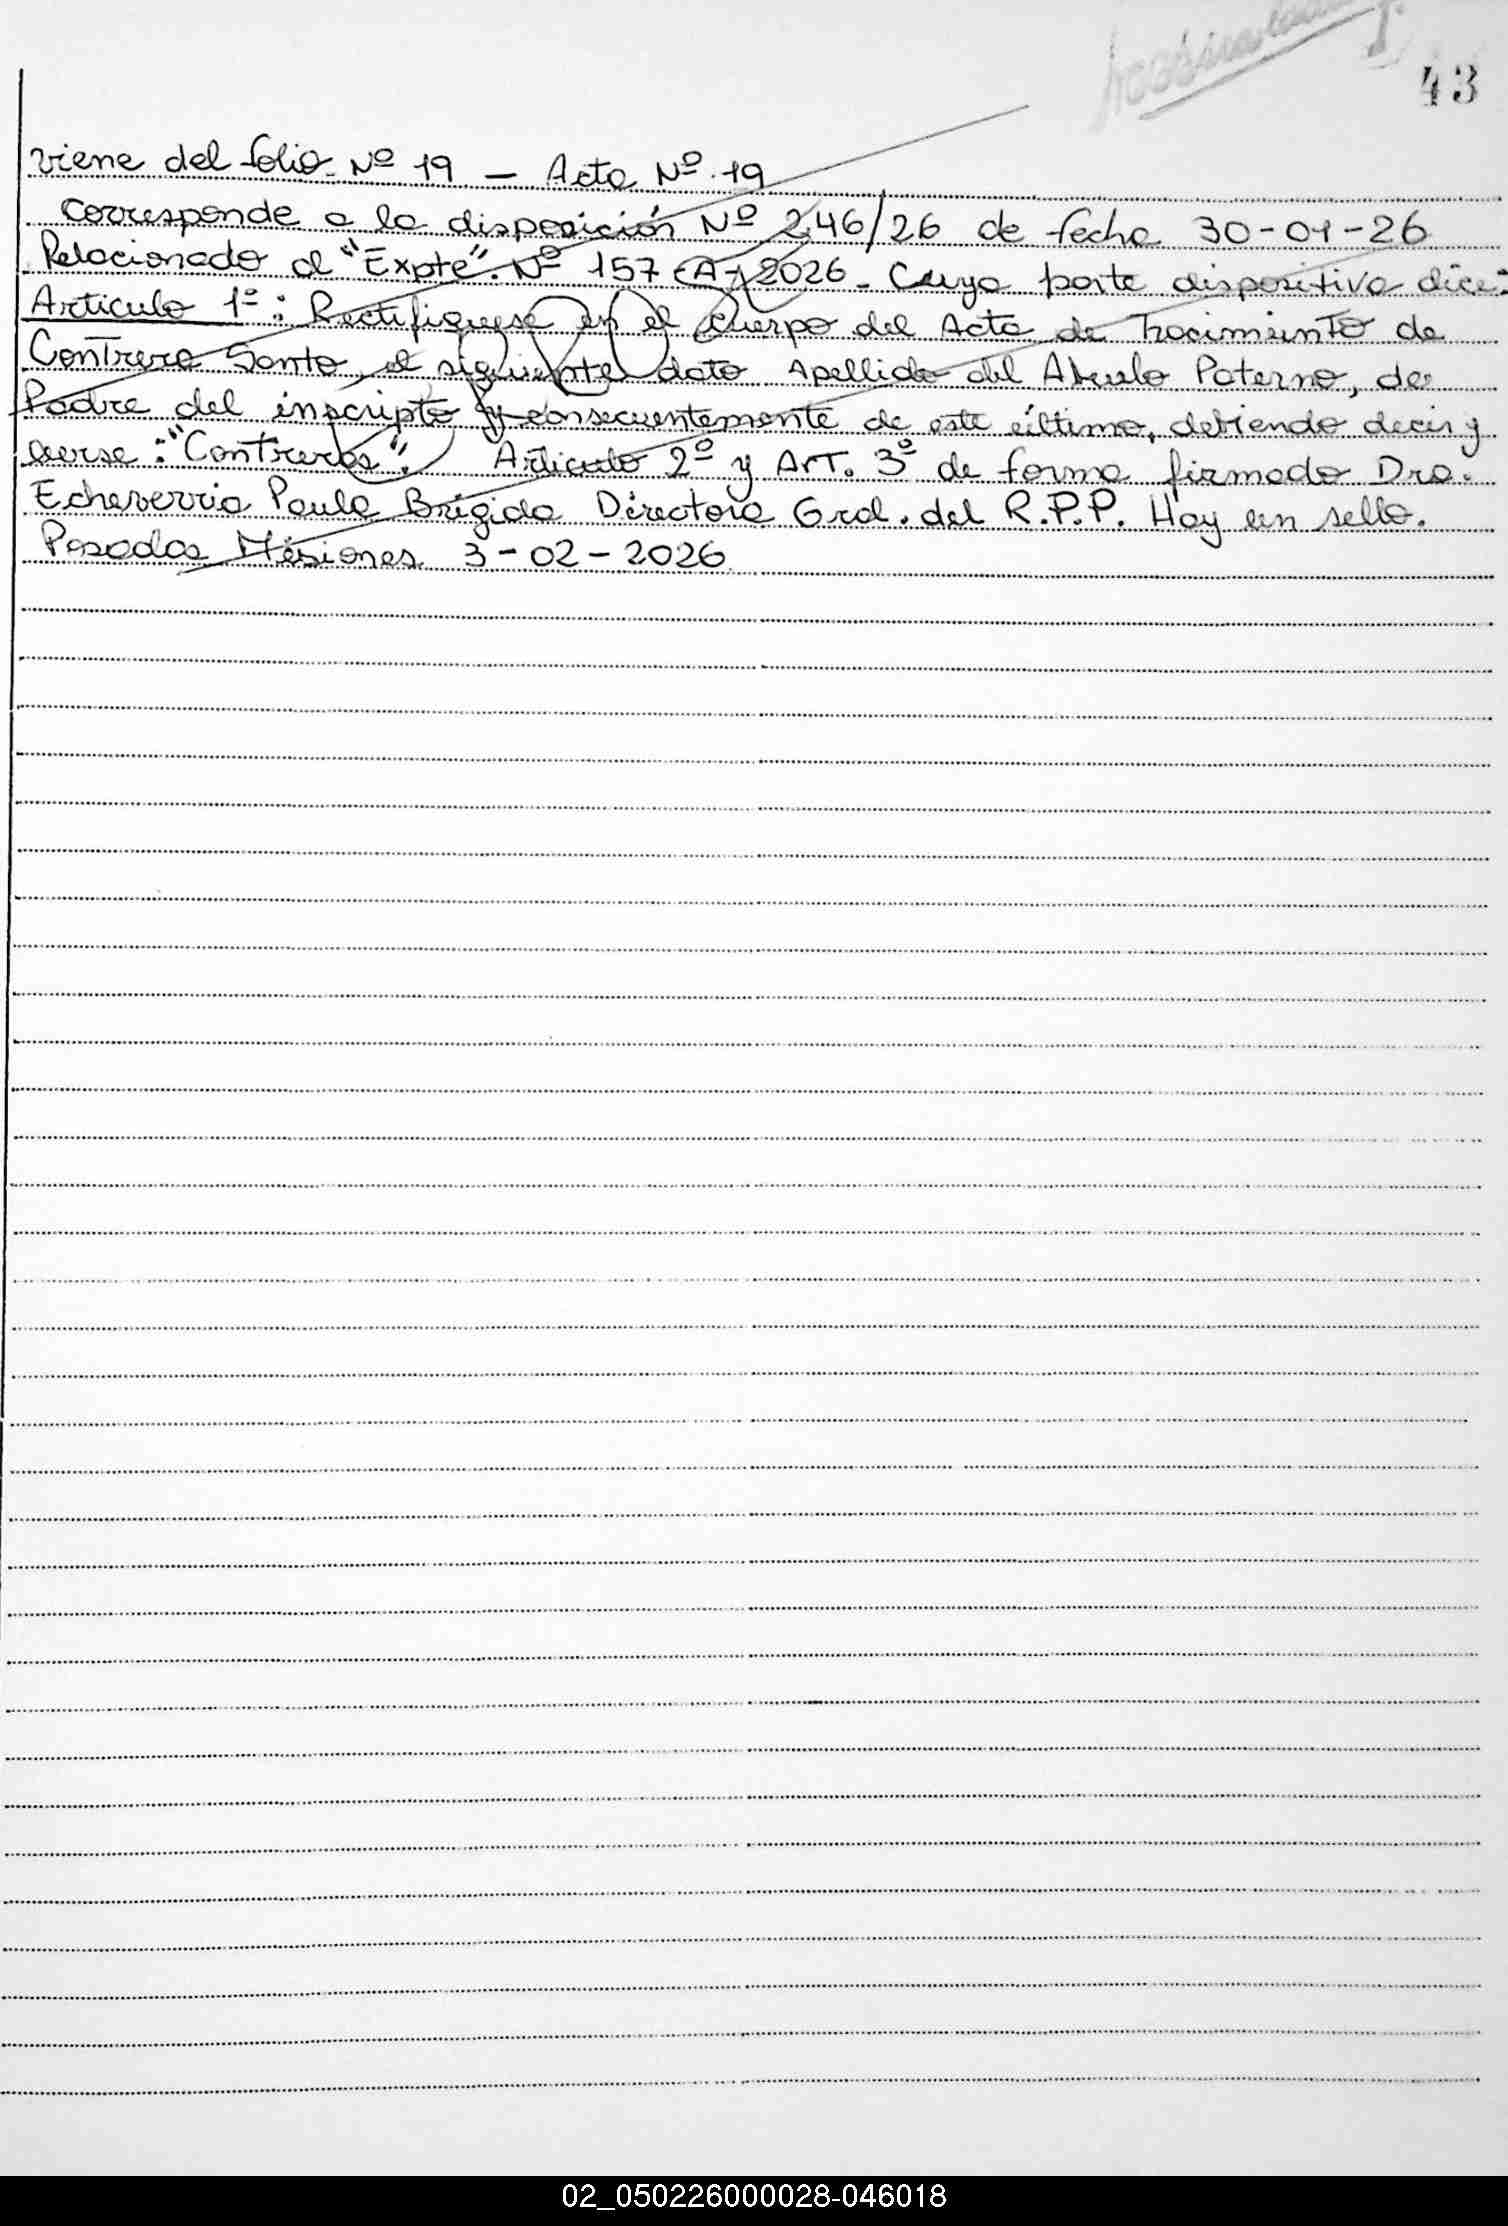 43
viene del folio Nº 19 - Acta Nº 19
Corresponde a la disposición Nº 246/26 de fecha 30-01-26
Relacionado al "Expte". Nº 157 "A" 2026 - Cuya parte dispositiva dice:
Articulo 1º: Rectifiquese en el cuerpo del Acta de Nacimiento de
Contrera Santo el siguiente dato Apellido del Abuelo Paterno, de
Padre del inscripto y consecuentemente de este último, debiendo decir y
leerse: "Contreras". Articulo 2º y Art. 3º de forma firmado Dra.
Echeverria Paula Brigida Directora Gral. del R.P.P. Hay un sello.
Posadas Misiones 3-02-2026
02_050226000028-046018